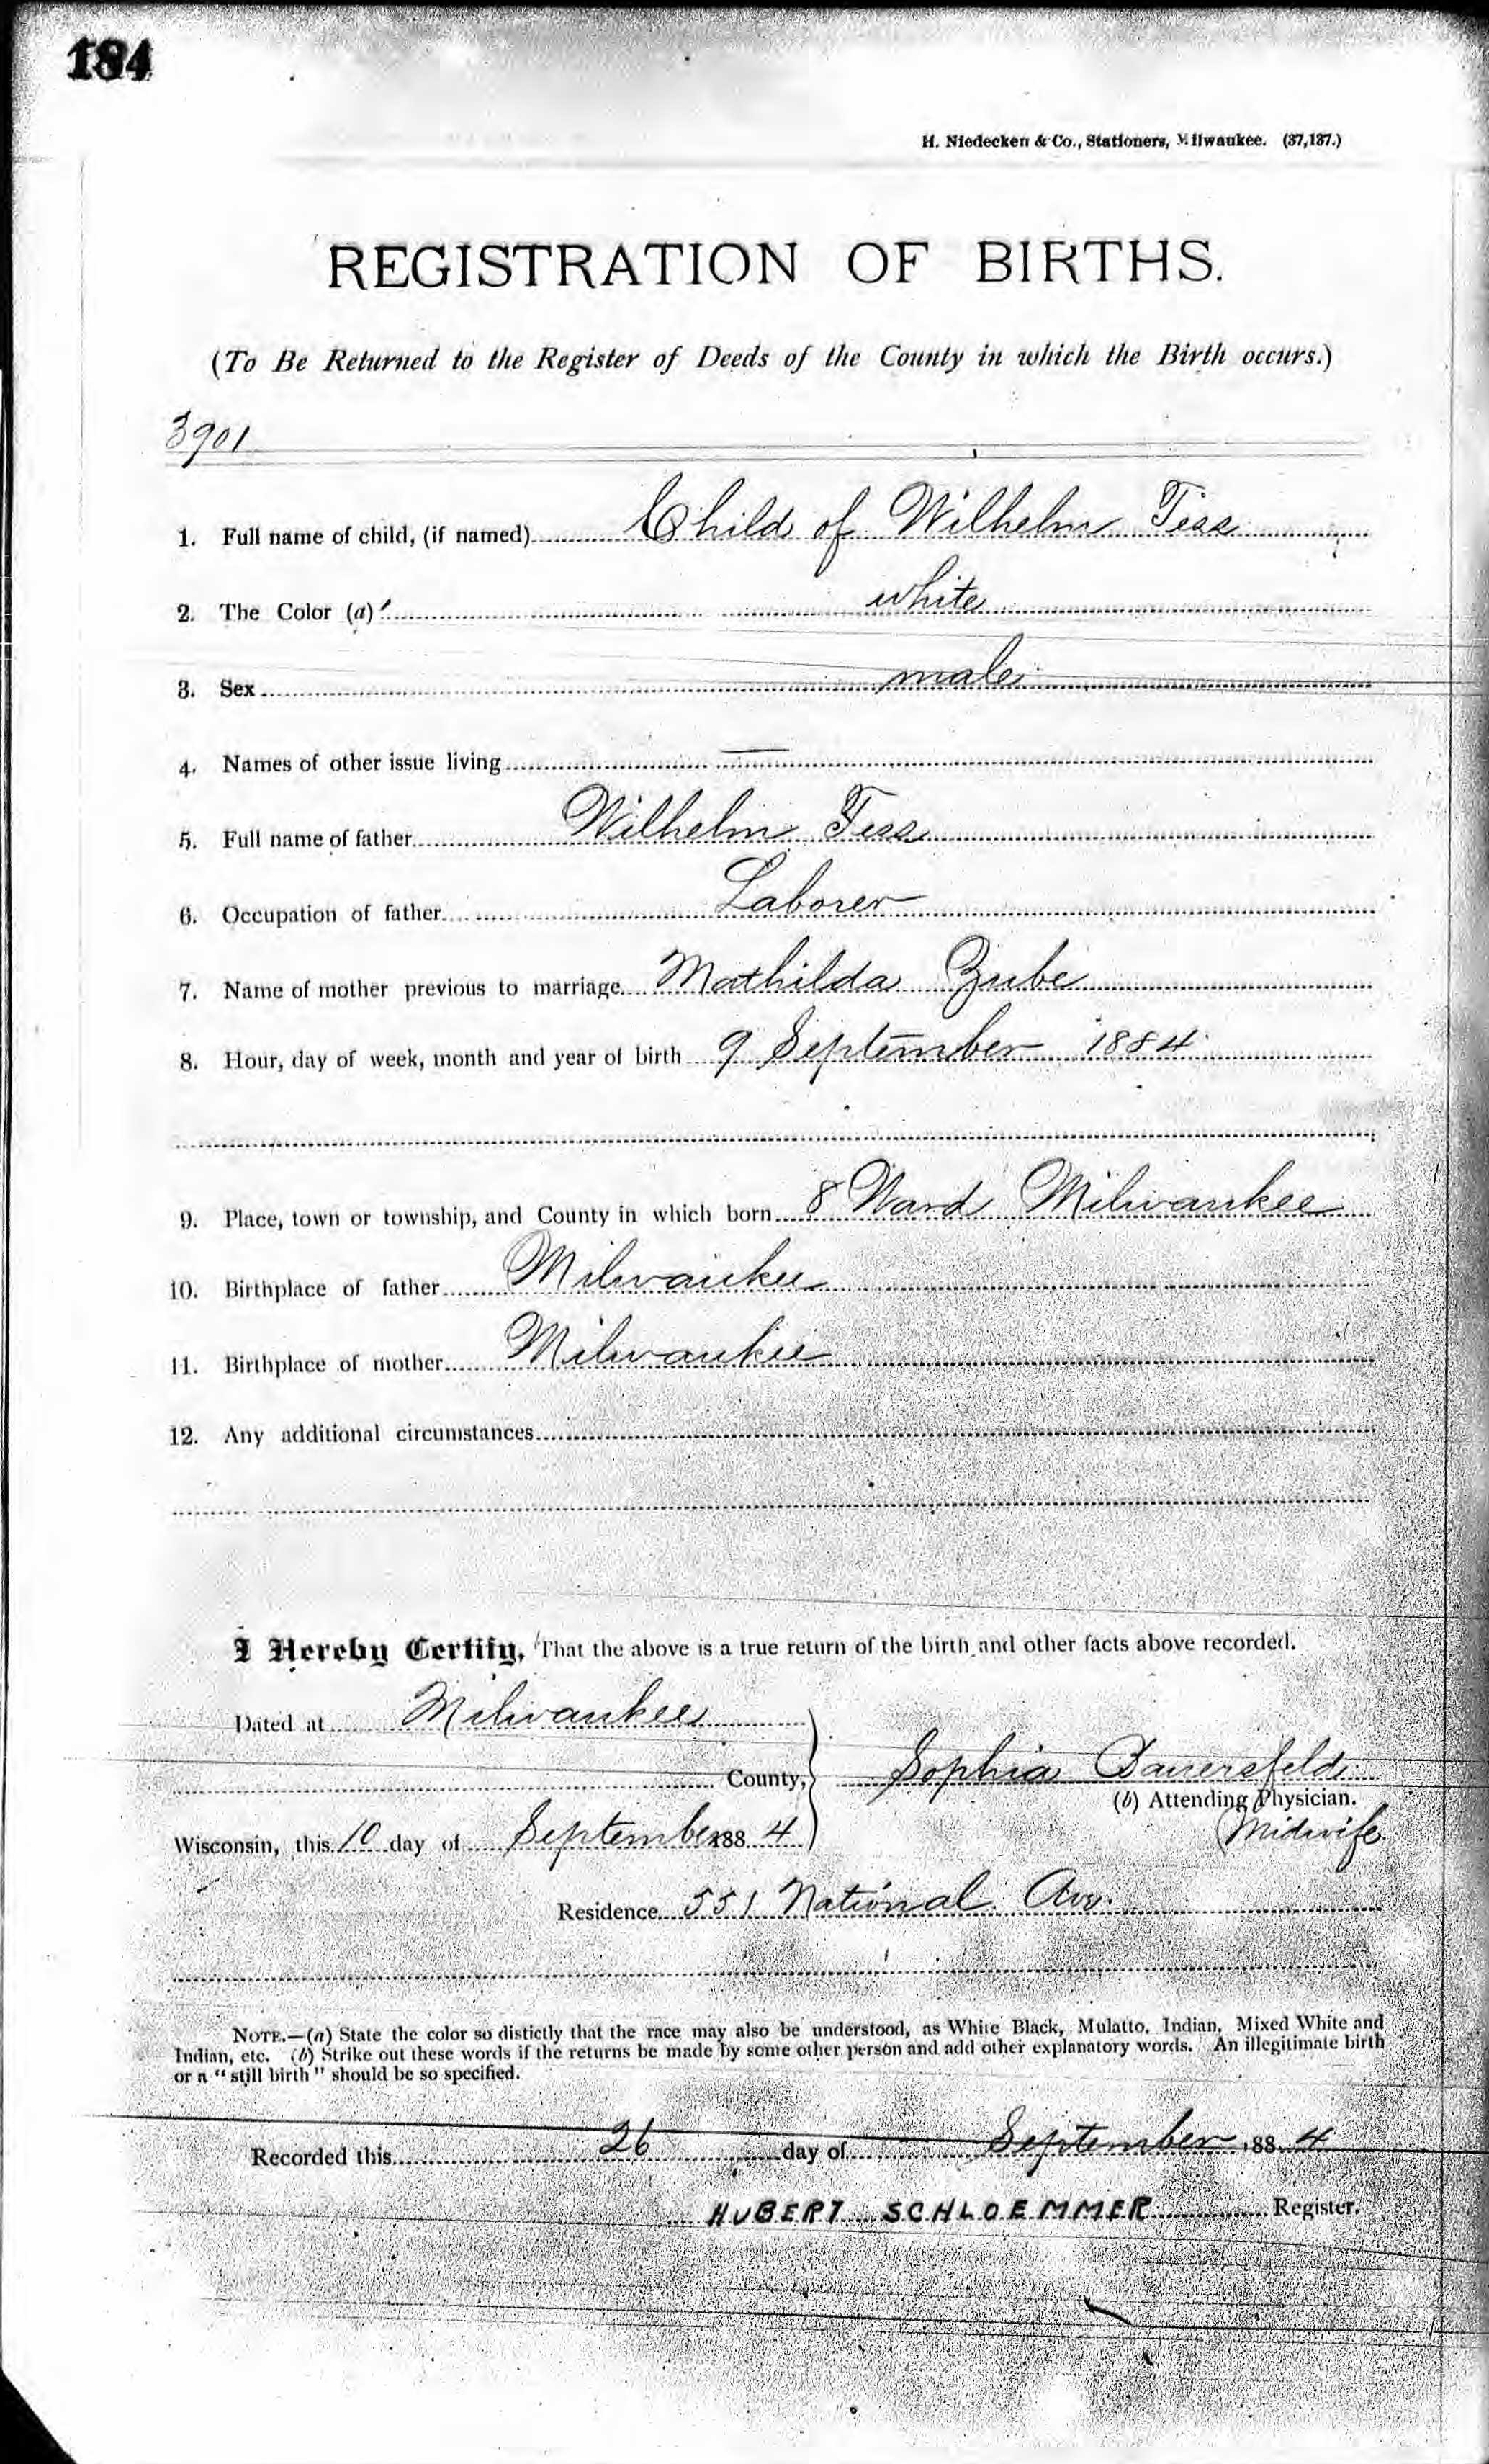 184
H. Niedecken & Co., Stationers, Milwaukee. (37,137.)
REGISTRATION OF BIRTHS.
(To Be Returned to the Register of Deeds of the County in which the Birth occurs.)
3901
1. Full name of child, (if named) Child of Wilhelm Tess
2. The Color (a) white
3. Sex male
4. Names of other issue living —
5. Full name of father Wilhelm Tess
6. Occupation of father Laborer
7. Name of mother previous to marriage Mathilda Zube
8. Hour, day of week, month and year of birth 9 September 1884
9. Place, town or township, and County in which born 8 Ward Milwaukee
10. Birthplace of father Milwaukee
11. Birthplace of mother Milwaukee
12. Any additional circumstances
I Hereby Certify, That the above is a true return of the birth and other facts above recorded.
Dated at Milwaukee
County, Sophia Bauersfeld
(b) Attending Physician.
Wisconsin, this 10 day of September 1884 Midwife
Residence 551 National Ave.
NOTE.—(a) State the color so distictly that the race may also be understood, as White Black, Mulatto, Indian, Mixed White and
Indian, etc. (b) Strike out these words if the returns be made by some other person and add other explanatory words. An illegitimate birth
or a "still birth" should be so specified.
Recorded this 26 day of September, 1884
HUBERT SCHLOEMMER Register.